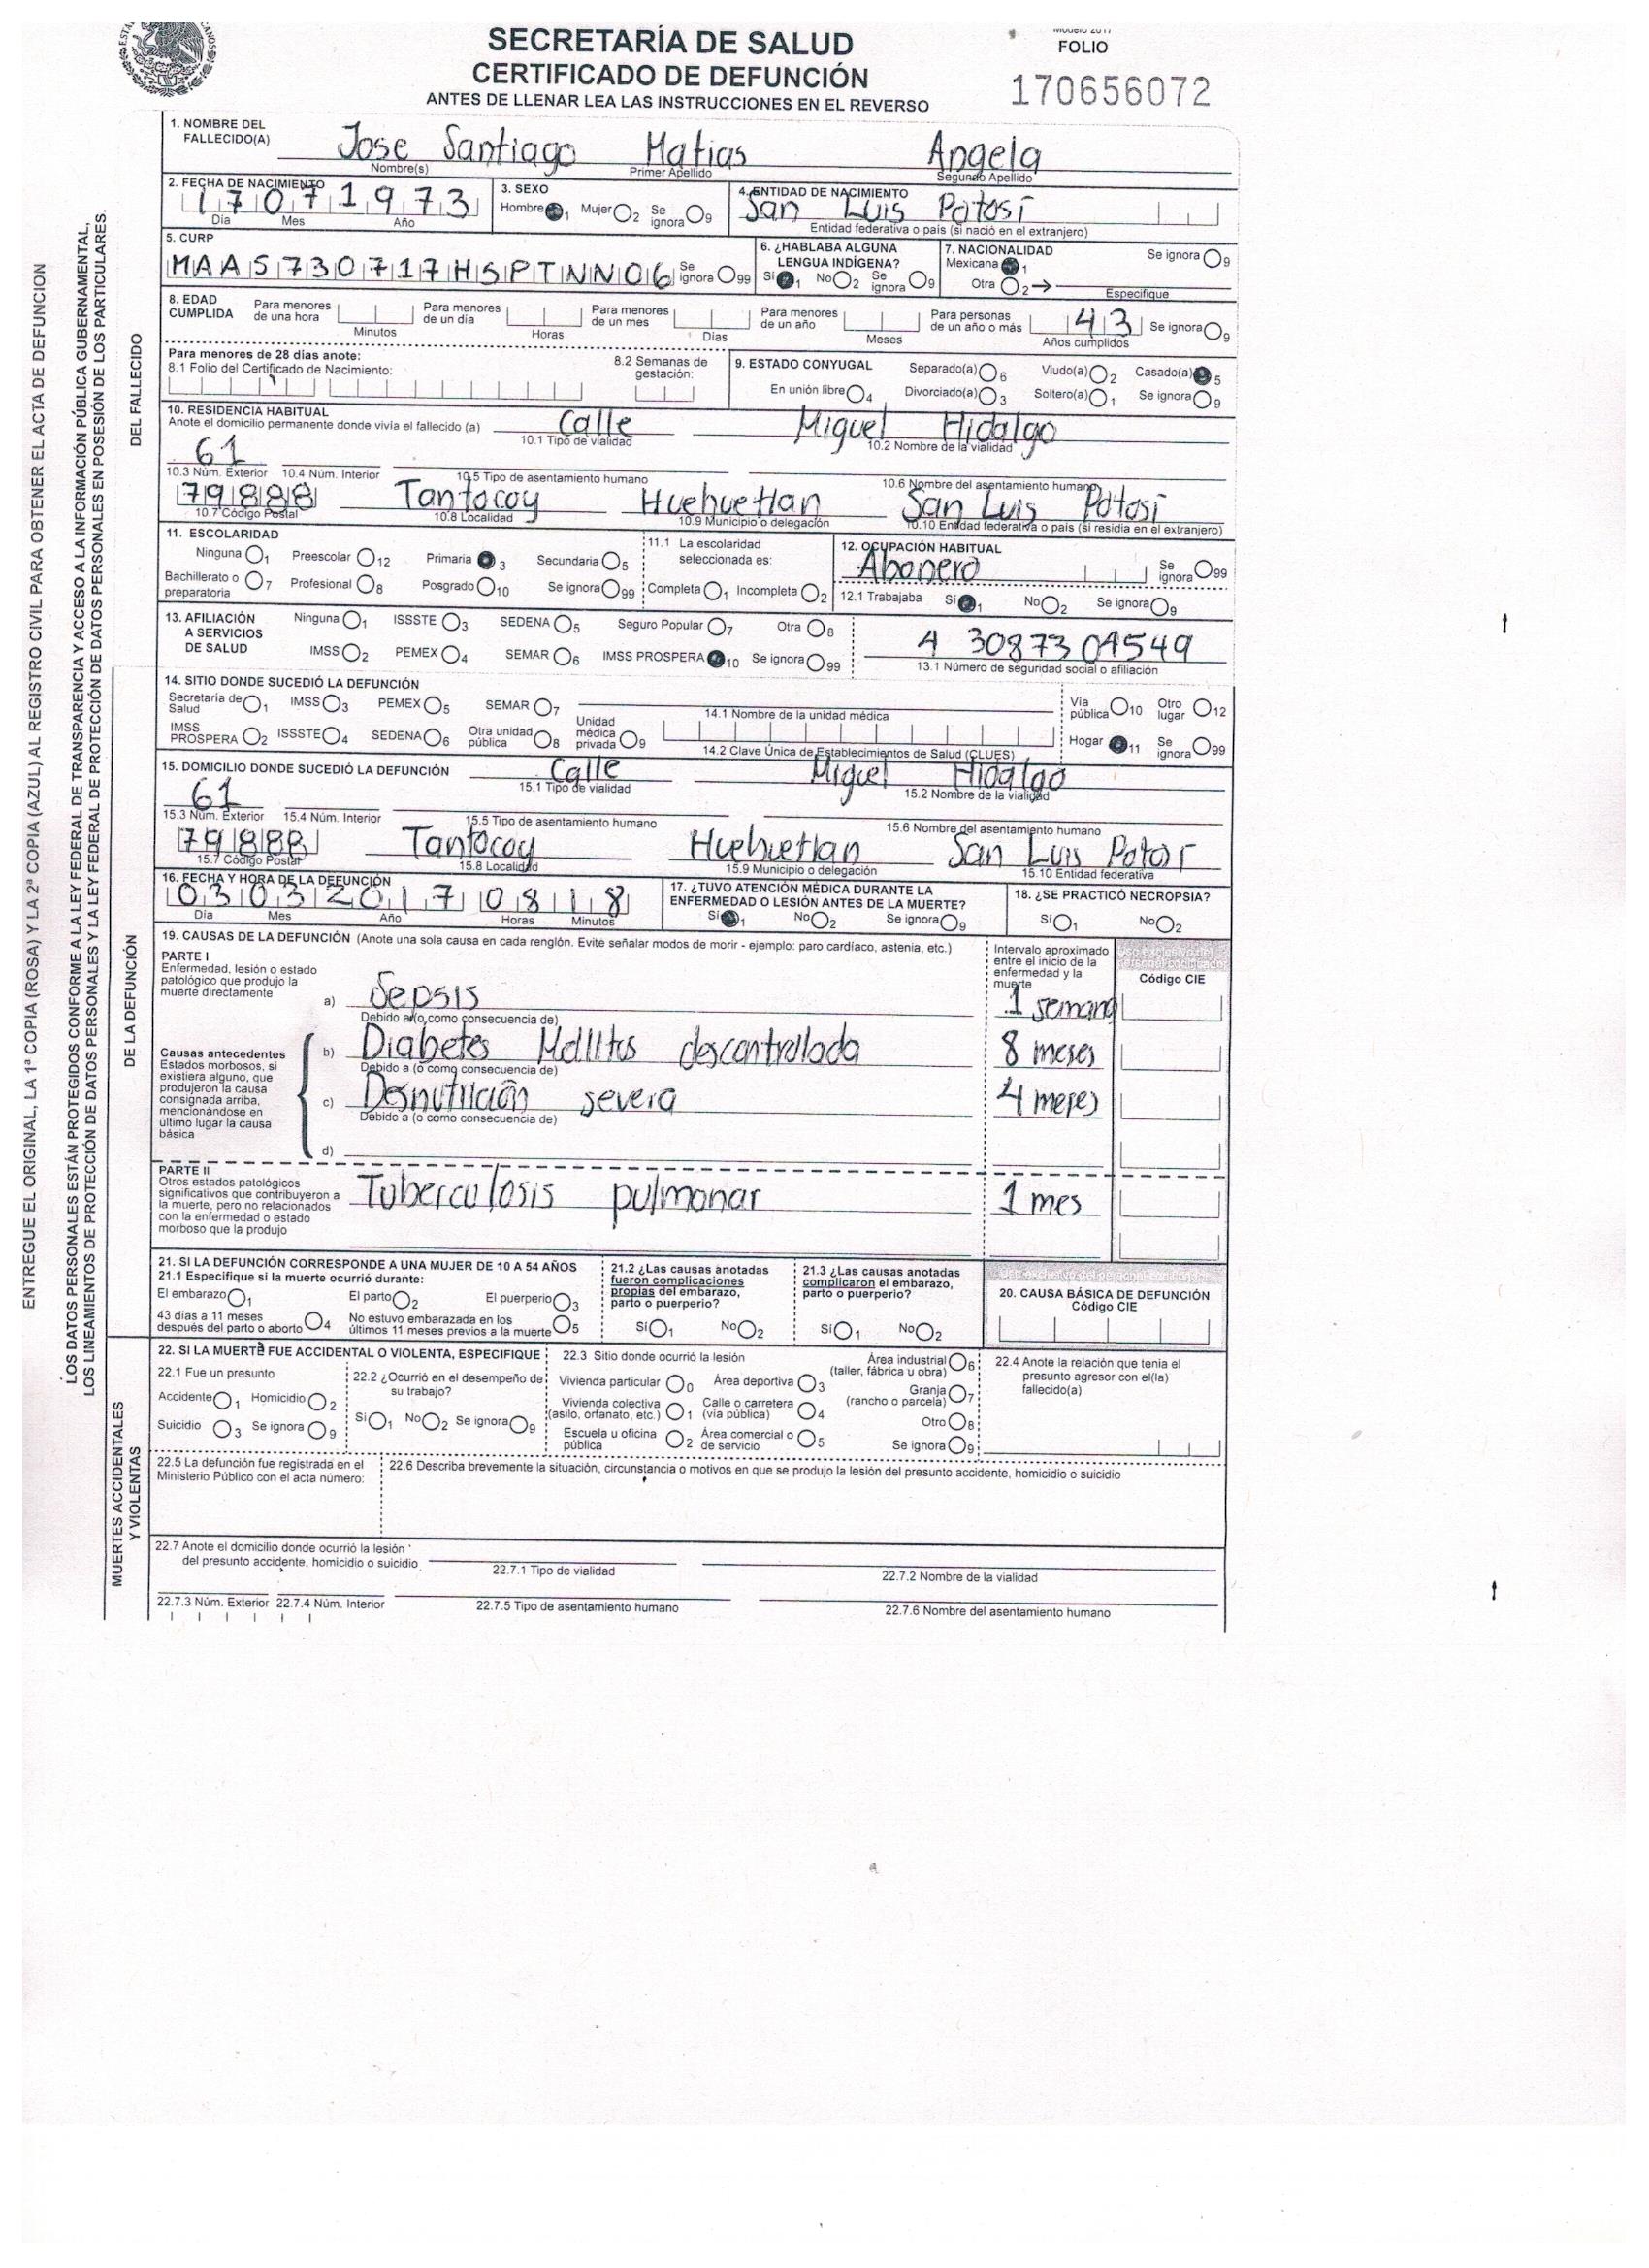 SECRETARÍA DE SALUD
CERTIFICADO DE DEFUNCIÓN
ANTES DE LLENAR LEA LAS INSTRUCCIONES EN EL REVERSO
FOLIO
170656072
ENTREGUE EL ORIGINAL, LA 1ª COPIA (ROSA) Y LA 2ª COPIA (AZUL) AL REGISTRO CIVIL PARA OBTENER EL ACTA DE DEFUNCION
LOS DATOS PERSONALES ESTÁN PROTEGIDOS CONFORME A LA LEY FEDERAL DE TRANSPARENCIA Y ACCESO A LA INFORMACIÓN PÚBLICA GUBERNAMENTAL,
LOS LINEAMIENTOS DE PROTECCIÓN DE DATOS PERSONALES Y LA LEY FEDERAL DE PROTECCIÓN DE DATOS PERSONALES EN POSESIÓN DE LOS PARTICULARES.
DEL FALLECIDO
1. NOMBRE DEL FALLECIDO(A) Jose Santiago Matias Angela
Nombre(s) Primer Apellido Segundo Apellido
2. FECHA DE NACIMIENTO 17 07 1973
Día Mes Año
3. SEXO Hombre 1 Mujer 2 Se ignora 9
4. ENTIDAD DE NACIMIENTO San Luis Potosí
Entidad federativa o país (si nació en el extranjero)
5. CURP MAAS730717HSPTNN06 Se ignora 99
6. ¿HABLABA ALGUNA LENGUA INDÍGENA? Sí 1 No 2 Se ignora 9
7. NACIONALIDAD Mexicana 1 Se ignora 9
Otra 2 Especifique
8. EDAD CUMPLIDA Para menores de una hora Minutos Para menores de un día Horas Para menores de un mes Días Para menores de un año Meses Para personas de un año o más 43 Años cumplidos Se ignora 9
Para menores de 28 días anote:
8.1 Folio del Certificado de Nacimiento: 8.2 Semanas de gestación:
9. ESTADO CONYUGAL Separado(a) 6 Viudo(a) 2 Casado(a) 5
En unión libre 4 Divorciado(a) 3 Soltero(a) 1 Se ignora 9
10. RESIDENCIA HABITUAL
Anote el domicilio permanente donde vivía el fallecido (a) Calle Miguel Hidalgo
10.1 Tipo de vialidad 10.2 Nombre de la vialidad
61
10.3 Núm. Exterior 10.4 Núm. Interior 10.5 Tipo de asentamiento humano 10.6 Nombre del asentamiento humano
79888 Tantocoy Huehuetlan San Luis Potosí
10.7 Código Postal 10.8 Localidad 10.9 Municipio o delegación 10.10 Entidad federativa o país (si residía en el extranjero)
11. ESCOLARIDAD
Ninguna 1 Preescolar 12 Primaria 3 Secundaria 5
Bachillerato o preparatoria 7 Profesional 8 Posgrado 10 Se ignora 99
11.1 La escolaridad seleccionada es:
Completa 1 Incompleta 2
12. OCUPACIÓN HABITUAL
Abonero Se ignora 99
12.1 Trabajaba Sí 1 No 2 Se ignora 9
13. AFILIACIÓN A SERVICIOS DE SALUD
Ninguna 1 ISSSTE 3 SEDENA 5 Seguro Popular 7 Otra 8
IMSS 2 PEMEX 4 SEMAR 6 IMSS PROSPERA 10 Se ignora 99
4 3087304549
13.1 Número de seguridad social o afiliación
DE LA DEFUNCIÓN
14. SITIO DONDE SUCEDIÓ LA DEFUNCIÓN
Secretaría de Salud 1 IMSS 3 PEMEX 5 SEMAR 7 14.1 Nombre de la unidad médica Vía pública 10 Otro lugar 12
IMSS PROSPERA 2 ISSSTE 4 SEDENA 6 Otra unidad pública 8 Unidad médica privada 9 14.2 Clave Única de Establecimientos de Salud (CLUES) Hogar 11 Se ignora 99
15. DOMICILIO DONDE SUCEDIÓ LA DEFUNCIÓN Calle Miguel Hidalgo
15.1 Tipo de vialidad 15.2 Nombre de la vialidad
61
15.3 Núm. Exterior 15.4 Núm. Interior 15.5 Tipo de asentamiento humano 15.6 Nombre del asentamiento humano
79888 Tantocoy Huehuetlan San Luis
15.7 Código Postal 15.8 Localidad 15.9 Municipio o delegación 15.10 Entidad federativa
16. FECHA Y HORA DE LA DEFUNCIÓN
03 03 2017 08 18
Día Mes Año Horas Minutos
17. ¿TUVO ATENCIÓN MÉDICA DURANTE LA ENFERMEDAD O LESIÓN ANTES DE LA MUERTE?
Sí 1 No 2 Se ignora 9
18. ¿SE PRACTICÓ NECROPSIA?
Sí 1 No 2
19. CAUSAS DE LA DEFUNCIÓN (Anote una sola causa en cada renglón. Evite señalar modos de morir - ejemplo: paro cardíaco, astenia, etc.)
Intervalo aproximado entre el inicio de la enfermedad y la muerte
Código CIE
PARTE I
Enfermedad, lesión o estado patológico que produjo la muerte directamente
a) Sepsis 1 semana
Debido a (o como consecuencia de)
Causas antecedentes
Estados morbosos, si existiera alguno, que produjeron la causa consignada arriba, mencionándose en último lugar la causa básica
b) Diabetes Mellitus descontrollada 8 meses
Debido a (o como consecuencia de)
c) Desnutrición severa 4 meses
Debido a (o como consecuencia de)
d)
PARTE II
Otros estados patológicos significativos que contribuyeron a la muerte, pero no relacionados con la enfermedad o estado morboso que la produjo
Tuberculosis pulmonar 1 mes
21. SI LA DEFUNCIÓN CORRESPONDE A UNA MUJER DE 10 A 54 AÑOS
21.1 Especifique si la muerte ocurrió durante:
El embarazo 1 El parto 2 El puerperio 3
43 días a 11 meses después del parto o aborto 4 No estuvo embarazada en los últimos 11 meses previos a la muerte 5
21.2 ¿Las causas anotadas fueron complicaciones propias del embarazo, parto o puerperio?
Sí 1 No 2
21.3 ¿Las causas anotadas complicaron el embarazo, parto o puerperio?
Sí 1 No 2
20. CAUSA BÁSICA DE DEFUNCIÓN
Código CIE
MUERTES ACCIDENTALES Y VIOLENTAS
22. SI LA MUERTE FUE ACCIDENTAL O VIOLENTA, ESPECIFIQUE
22.1 Fue un presunto
Accidente 1 Homicidio 2
Suicidio 3 Se ignora 9
22.2 ¿Ocurrió en el desempeño de su trabajo?
Sí 1 No 2 Se ignora 9
22.3 Sitio donde ocurrió la lesión
Vivienda particular 0 Área deportiva 3 Área industrial (taller, fábrica u obra) 6
Vivienda colectiva (asilo, orfanato, etc.) 1 Calle o carretera (vía pública) 4 Granja (rancho o parcela) 7
Escuela u oficina pública 2 Área comercial o de servicio 5 Otro 8
Se ignora 9
22.4 Anote la relación que tenía el presunto agresor con el(la) fallecido(a)
22.5 La defunción fue registrada en el Ministerio Público con el acta número:
22.6 Describa brevemente la situación, circunstancia o motivos en que se produjo la lesión del presunto accidente, homicidio o suicidio
22.7 Anote el domicilio donde ocurrió la lesión del presunto accidente, homicidio o suicidio
22.7.1 Tipo de vialidad 22.7.2 Nombre de la vialidad
22.7.3 Núm. Exterior 22.7.4 Núm. Interior 22.7.5 Tipo de asentamiento humano 22.7.6 Nombre del asentamiento humano